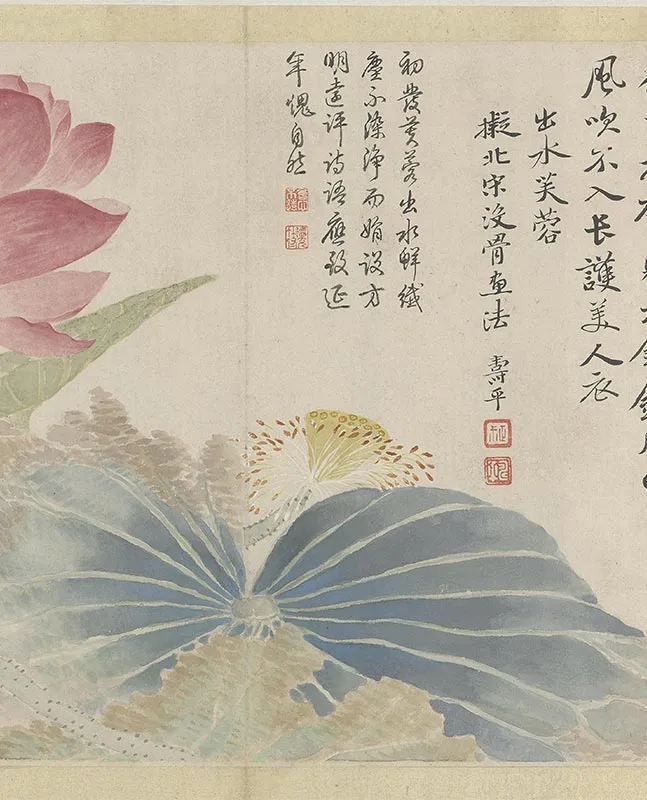 風吹不入長護美人衣
出水芙蓉
擬北宋没骨畫法 壽平
初發芙蓉出水鮮纖
塵不染淨而娟設方
明遠評詩語應致延
年愧自然